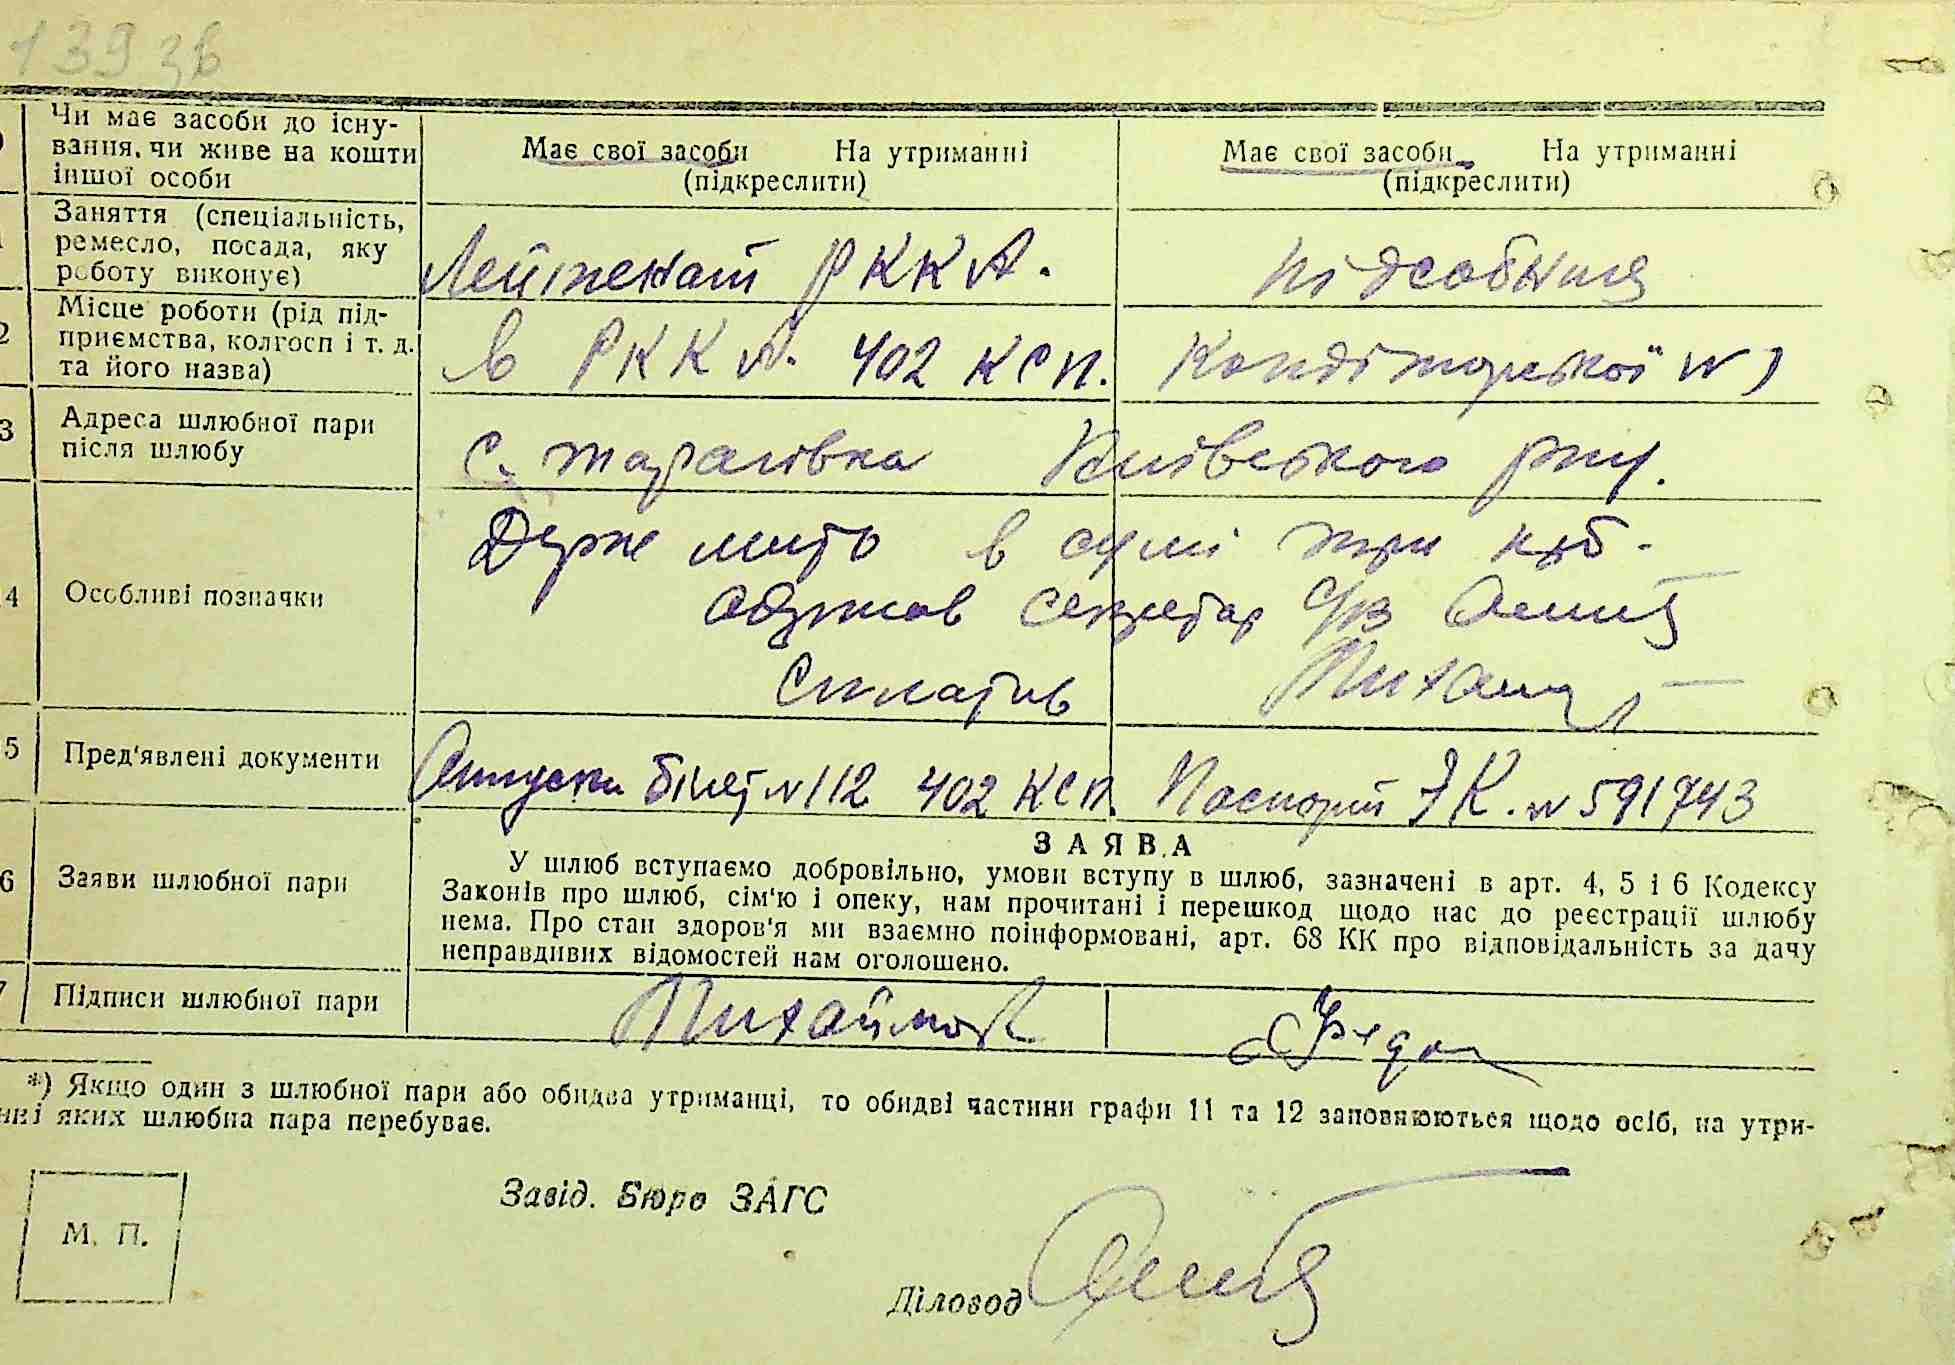 139 зв
Чи має засоби до існу-
вання, чи живе на кошти
іншої особи
Має свої засоби На утриманні
(підкреслити)
Має свої засоби На утриманні
(підкреслити)
Заняття (спеціальність,
ремесло, посада, яку
роботу виконує)
Лейтенант РККА.
підсобниця
2 Місце роботи (рід під-
приємства, колгосп і т. д.
та його назва)
в РККА. 402 КСП.
Кондіторської №
3 Адреса шлюбної пари
після шлюбу
с. Тарасівка Київського р-ну.
4 Особливі позначки
Держ мито в сумі три крб.
Одержав секретар с/р
Сплатив
5 Пред'явлені документи
білет № 112 402 КСП.
Паспорт ЯК. № 591743
6 Заяви шлюбної пари
ЗАЯВА
У шлюб вступаємо добровільно, умови вступу в шлюб, зазначені в арт. 4, 5 і 6 Кодексу
Законів про шлюб, сім'ю і опеку, нам прочитані і перешкод щодо нас до реєстрації шлюбу
нема. Про стан здоров'я ми взаємно поінформовані, арт. 68 КК про відповідальність за дачу
неправдивих відомостей нам оголошено.
7 Підписи шлюбної пари
*) Якщо один з шлюбної пари або обидва утриманці, то обидві частини графи 11 та 12 заповнюються щодо осіб, на утри-
нні яких шлюбна пара перебуває.
М. П.
Завід. Бюро ЗАГС
Діловод